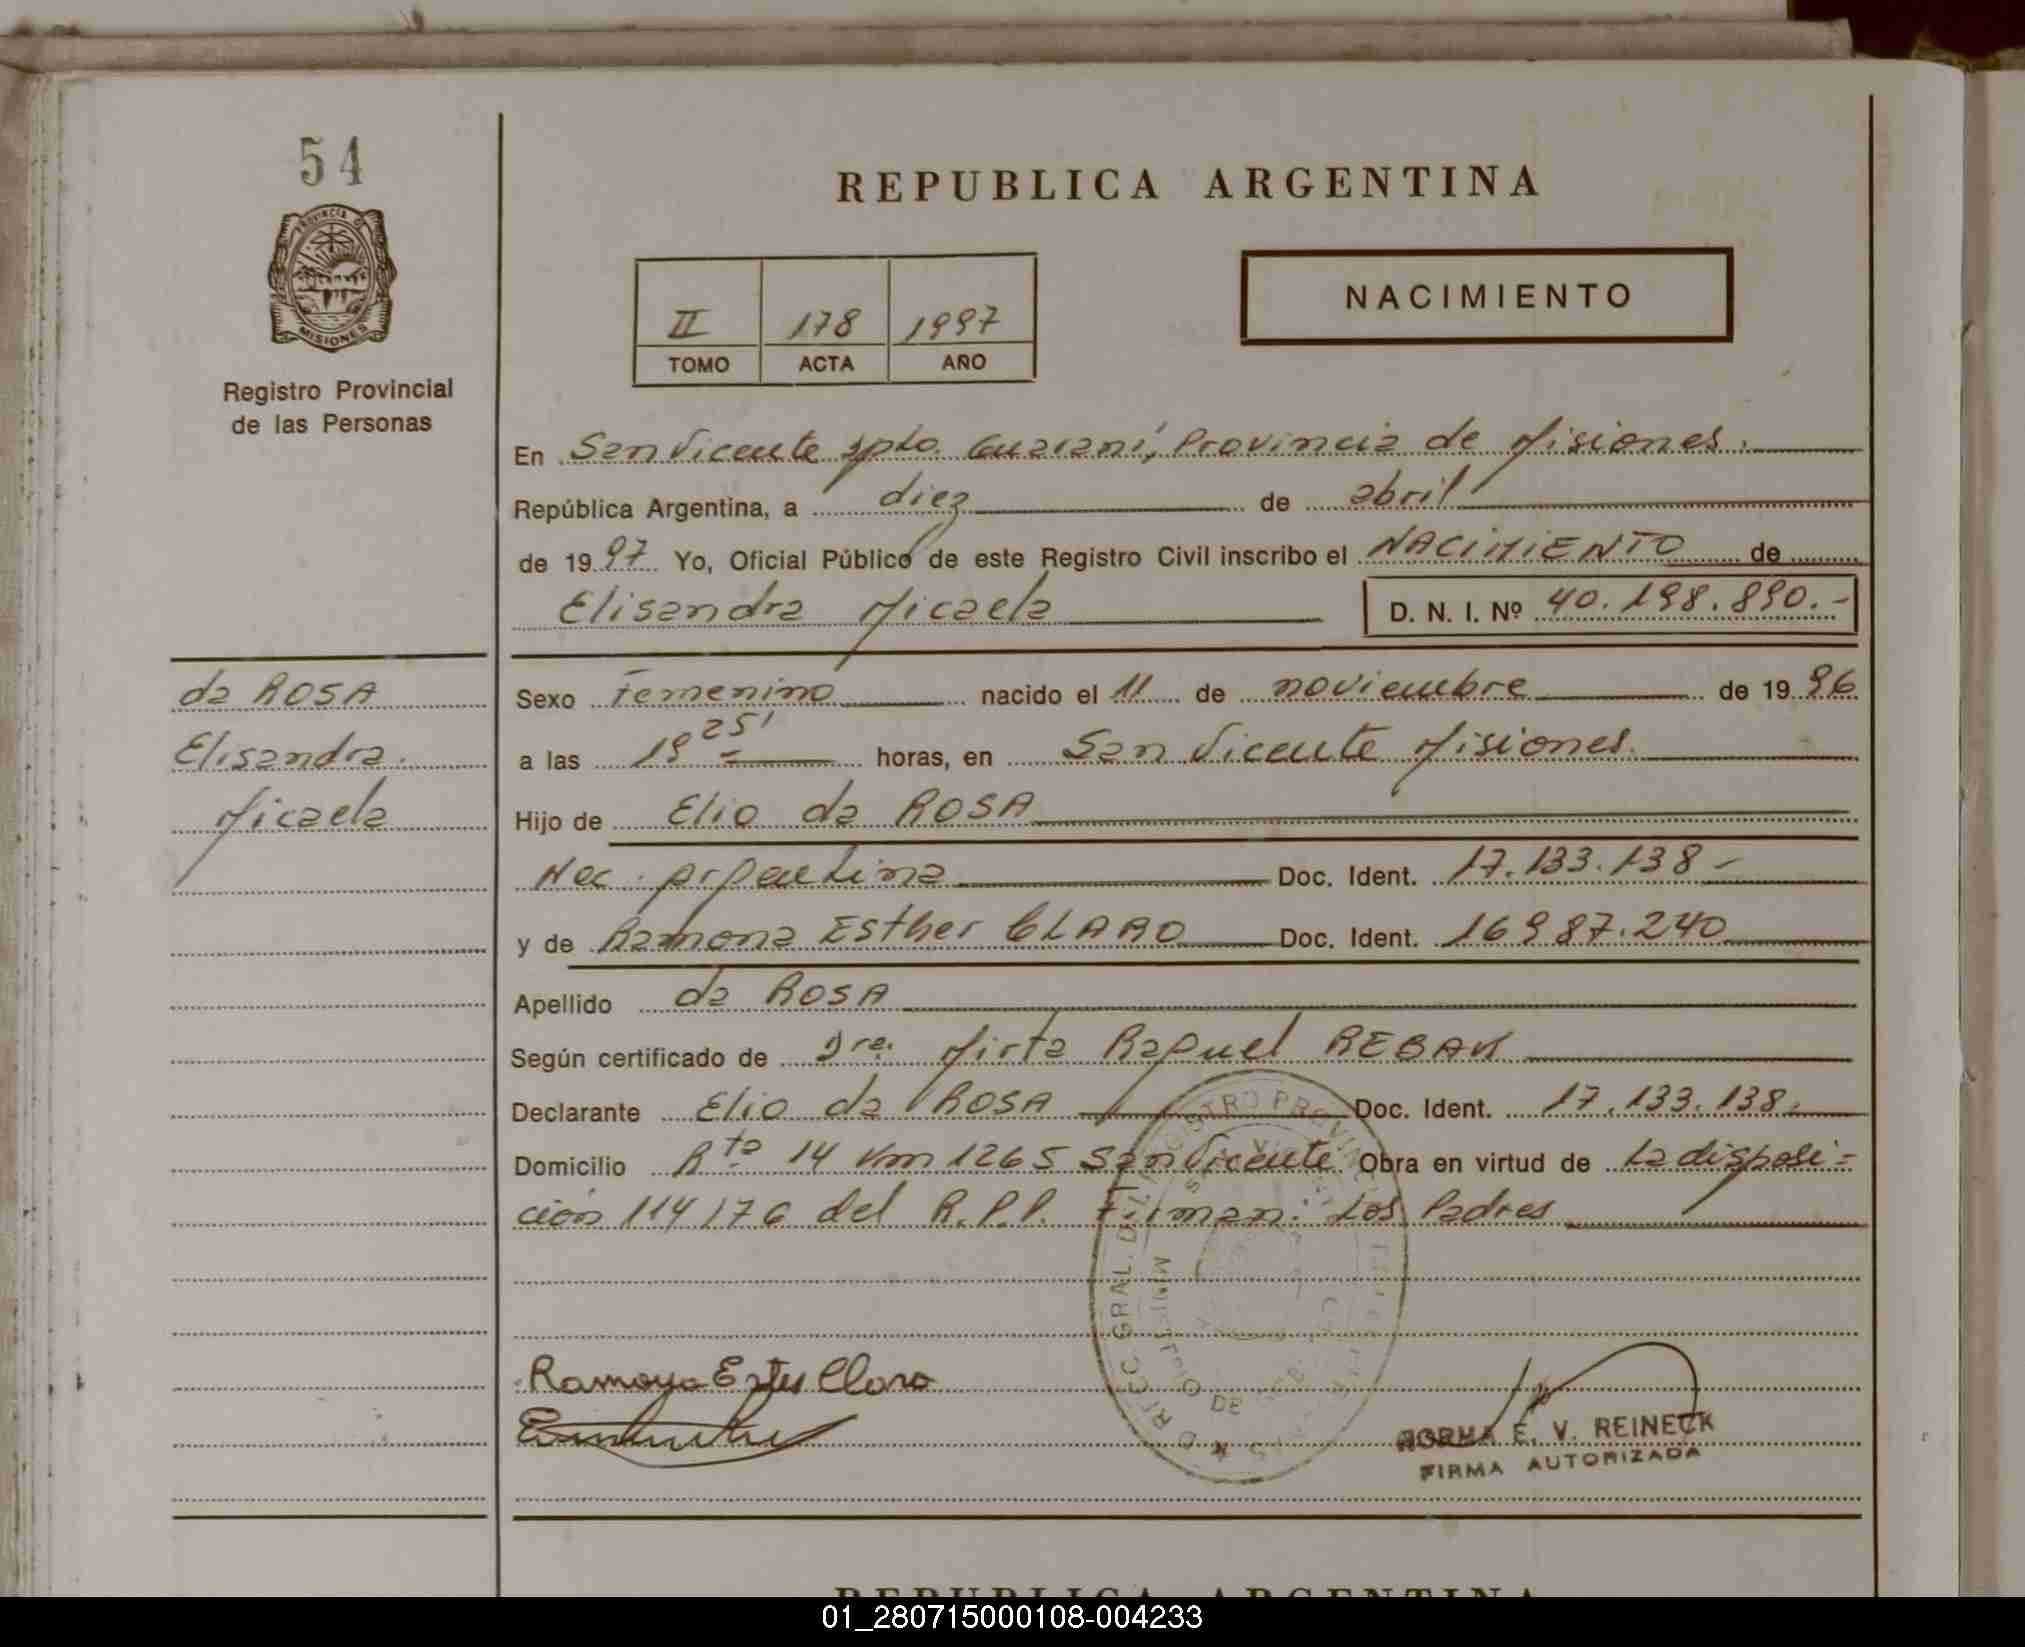 54
PROVINCIA D
MISIONES
Registro Provincial
de las Personas
REPUBLICA ARGENTINA
II 178 1997
TOMO ACTA AÑO
NACIMIENTO
En San Vicente Dpto. Guaraní, Provincia de Misiones.
República Argentina, a diez de abril
de 1997 Yo, Oficial Público de este Registro Civil inscribo el NACIMIENTO de
Elisandra Micaela D. N. I. Nº 40.198.890.-
da ROSA
Elisandra
Micaela
Sexo Femenino nacido el 11 de noviembre de 1996
a las 19 25' horas, en San Vicente Misiones.
Hijo de Elio da ROSA
Nac. Argentina Doc. Ident. 17.133.138-
y de Ramona Esther CLARO Doc. Ident. 16987.240
Apellido da ROSA
Según certificado de Dra. Mirta Raquel REBAK
Declarante Elio da ROSA Doc. Ident. 17.133.138.
Domicilio Rta 14 Km 1265 San Vicente Obra en virtud de La disposi=
ción 114/76 del R.P.P. Firman: Los Padres
D REGC GRAL. DEL REGISTRO PROVIN
MINISTERIO DE GOB
Ramona Ester Claro
NORMA E. V. REINECK
FIRMA AUTORIZADA
REPUBLICA ARGENTINA
01_280715000108-004233